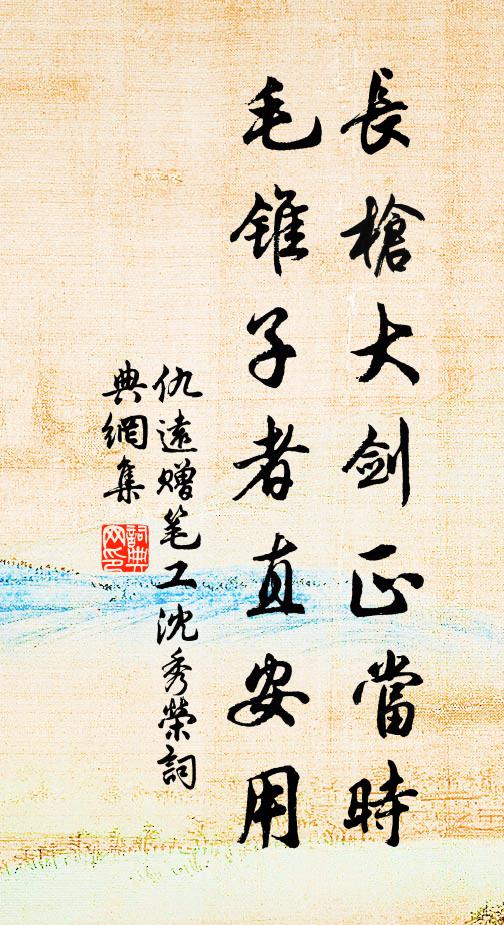 長槍大劍正當時
毛錐子者直安用
仇遠贈笔工沈秀榮詞
典網集
詞典
网印